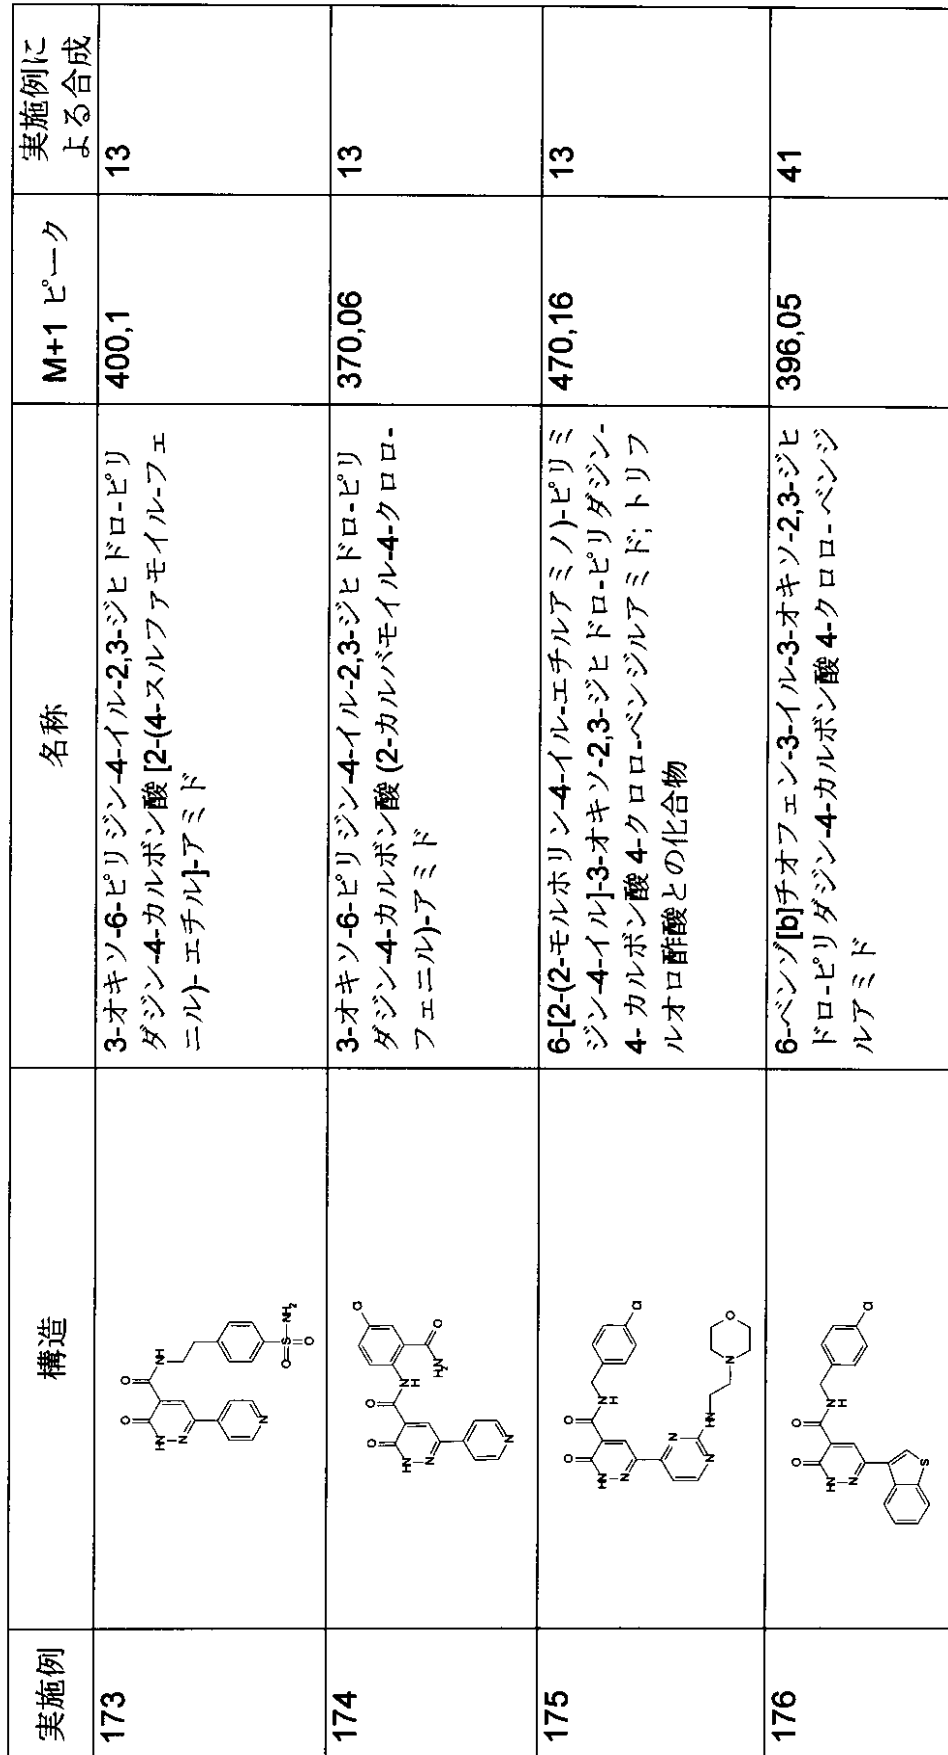 実施例
構造
名称
M+1 ピーク
実施例に
よる合成
173
3-オキソ-6-ピリジン-4-イル-2,3-ジヒドロ-ピリ
ダジン-4-カルボン酸 [2-(4-スルファモイル-フェ
ニル)- エチル]-アミド
400,1
13
O
O
NH
NH
N
N
O=S=O
NH2
174
3-オキソ-6-ピリジン-4-イル-2,3-ジヒドロ-ピリ
ダジン-4-カルボン酸 (2-カルバモイル-4-クロロ-
フェニル)-アミド
370,06
13
O
O
NH
NH
N
N
H2N
O
Cl
175
6-[2-(2-モルホリン-4-イル-エチルアミノ)-ピリミ
ジン-4-イル]-3-オキソ-2,3-ジヒドロ-ピリダジン-
4- カルボン酸 4-クロロ-ベンジルアミド; トリフ
ルオロ酢酸との化合物
470,16
13
O
O
NH
NH
N
N
N
HN
N
O
Cl
176
6-ベンゾ[b]チオフェン-3-イル-3-オキソ-2,3-ジヒ
ドロ-ピリダジン-4-カルボン酸 4-クロロ-ベンジ
ルアミド
396,05
41
O
O
NH
NH
N
S
Cl